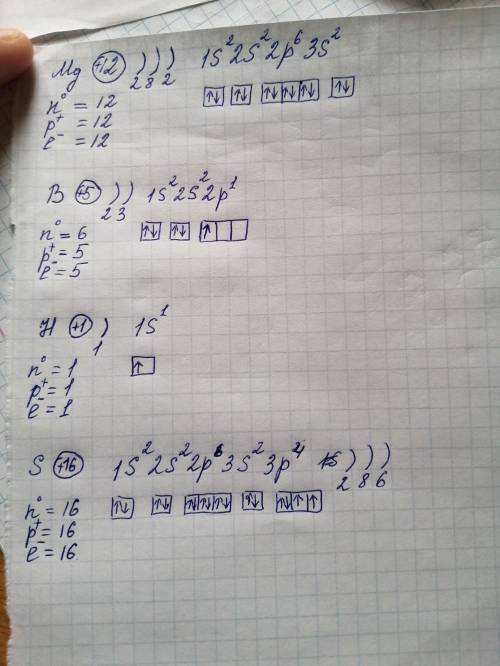 Mg +12 ) ) ) 1s² 2s² 2p⁶ 3s²
2 8 2
n⁰ = 12 ↑↓ ↑↓ ↑↓ ↑↓ ↑↓ ↑↓
p⁺ = 12
e⁻ = 12
B +5 ) ) 1s² 2s² 2p¹
2 3
n⁰ = 6 ↑↓ ↑↓ ↑
p⁺ = 5
e⁻ = 5
H +1 ) 1s¹
1
n⁰ = 1 ↑
p⁺ = 1
e⁻ = 1
S +16 1s² 2s² 2p⁶ 3s² 3p⁴ ) ) )
2 8 6
n⁰ = 16 ↑↓ ↑↓ ↑↓ ↑↓ ↑↓ ↑↓ ↑↓ ↑ ↑
p⁺ = 16
e⁻ = 16